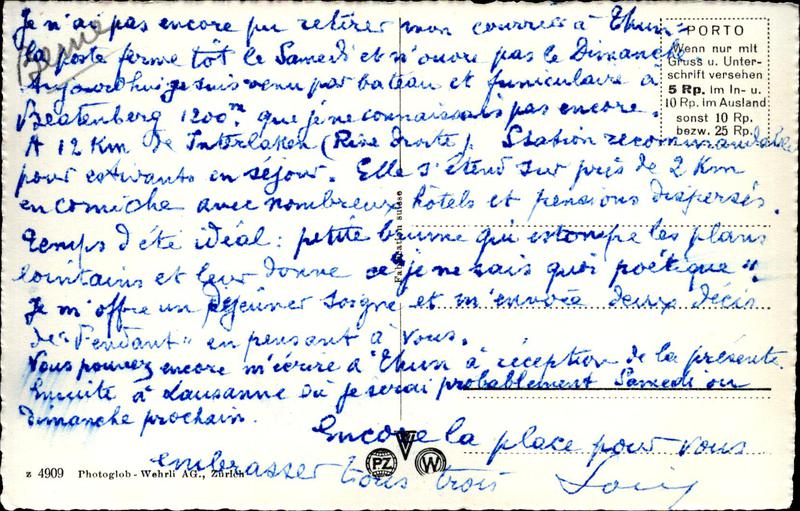 Je n'ai pas encore pu retirer mon courrier à Thun =
la poste ferme tôt le Samedi et n'ouvre pas le Dimanche.
Aujourd'hui je suis venu par bateau et funiculaire à
Beatenberg 1200m que je ne connaissais pas encore.
A 12 Km de Interlaken (Rive droite). Station recommandable
pour estivants en séjour. Elle s'étend sur près de 2 Km
en corniche avec nombreux hôtels et pensions dispersés.
Temps d'été idéal : petite brume qui estompe les plans
lointains et leur donne ce "je ne sais quoi poétique".
Je m'offre un déjeuner soigné et m'envoie deux décis
de "Fendant" en pensant à vous.
Vous pouvez encore m'écrire à Thun à réception de la présente
Ensuite à Lausanne où je serai probablement Samedi ou
dimanche prochain.
Encore la place pour vous
embrasser tous trois Louis
Berne
PORTO
Wenn nur mit
Gruss u. Unter-
schrift versehen
5 Rp. im In- u.
10 Rp. im Ausland
sonst 10 Rp.
bezw. 25 Rp.
Fabrication suisse
z 4909 Photoglob - Wehrli AG., Zürich
PZ W